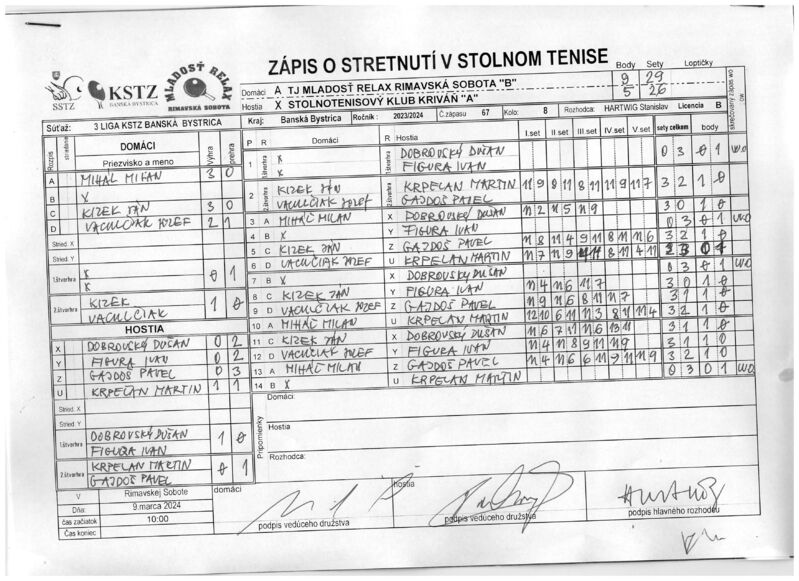 ZÁPIS O STRETNUTÍ V STOLNOM TENISE
SSTZ
KSTZ
BANSKÁ BYSTRICA
MLADOSŤ RELAX
RIMAVSKÁ SOBOTA
Body Sety Loptičky
Domáci A TJ MLADOSŤ RELAX RIMAVSKÁ SOBOTA "B" 9 29
Hostia X STOLNOTENISOVÝ KLUB KRIVÁN "A" 5 26
Súťaž: 3 LIGA KSTZ BANSKÁ BYSTRICA
Kraj: Banská Bystrica Ročník: 2023/2024 Č.zápasu 67 Kolo: 8 Rozhodca: HARTWIG Stanislav Licencia B
skrečovaný zápas WO
Rozpis striedanie DOMÁCI Výhra prehra
Priezvisko a meno
A MIHÁĽ MILAN 3 0
B X
C KIZEK JÁN 3 0
D VACULČIAK JOZEF 2 1
Stried. X
Stried. Y
1.štvorhra X X 0 1
2.štvorhra KIZEK VACULČIAK 1 0
HOSTIA
X DOBROVSKÝ DUŠAN 0 2
Y FIGURA IVAN 0 2
Z GAJDOŠ PAVEL 0 3
U KRPELAN MARTIN 1 1
Stried. X
Stried. Y
1.štvorhra DOBROVSKÝ DUŠAN FIGURA IVAN 1 0
2.štvorhra KRPELAN MARTIN GAJDOŠ PAVEL 0 1
P R Domáci R Hostia I.set II.set III.set IV.set V.set sety celkom body
1 štvorhra X X DOBROVSKÝ DUŠAN FIGURA IVAN 0 3 0 1 W.O
2 KIZEK JÁN VACULČIAK JOZEF KRPELAN MARTIN GAJDOŠ PAVEL 11 9 8 11 8 11 11 9 11 7 3 2 1 0
3 A MIHÁĽ MILAN X DOBROVSKÝ DUŠAN 11 2 11 5 11 9 3 0 1 0
4 B X Y FIGURA IVAN 0 3 0 1 W.O
5 C KIZEK JÁN Z GAJDOŠ PAVEL 11 8 11 4 9 11 8 11 11 6 3 2 1 0
6 D VACULČIAK JOZEF U KRPELAN MARTIN 11 7 11 9 8 11 4 11 2 3 0 1
7 B X X DOBROVSKÝ DUŠAN 0 3 0 1 W.O
8 C KIZEK JÁN Y FIGURA IVAN 11 4 11 6 11 7 3 0 1 0
9 D VACULČIAK JOZEF Z GAJDOŠ PAVEL 11 9 11 6 8 11 11 7 3 1 1 0
10 A MIHÁĽ MILAN U KRPELAN MARTIN 12 10 6 11 11 3 8 11 11 4 3 2 1 0
11 C KIZEK JÁN X DOBROVSKÝ DUŠAN 11 6 7 11 11 6 13 11 3 1 1 0
12 D VACULČIAK JOZEF Y FIGURA IVAN 11 4 11 8 9 11 11 9 3 1 1 0
13 A MIHÁĽ MILAN Z GAJDOŠ PAVEL 11 4 11 6 6 11 9 11 11 9 3 2 1 0
14 B X U KRPELAN MARTIN 0 3 0 1 W.O
Pripomienky
Domáci:
Hostia
Rozhodca:
V Rimavskej Sobote
Dňa: 9.marca 2024
čas začiatok 10:00
Čas koniec
domáci
podpis vedúceho družstva
hostia
podpis vedúceho družstva
podpis hlavného rozhodcu